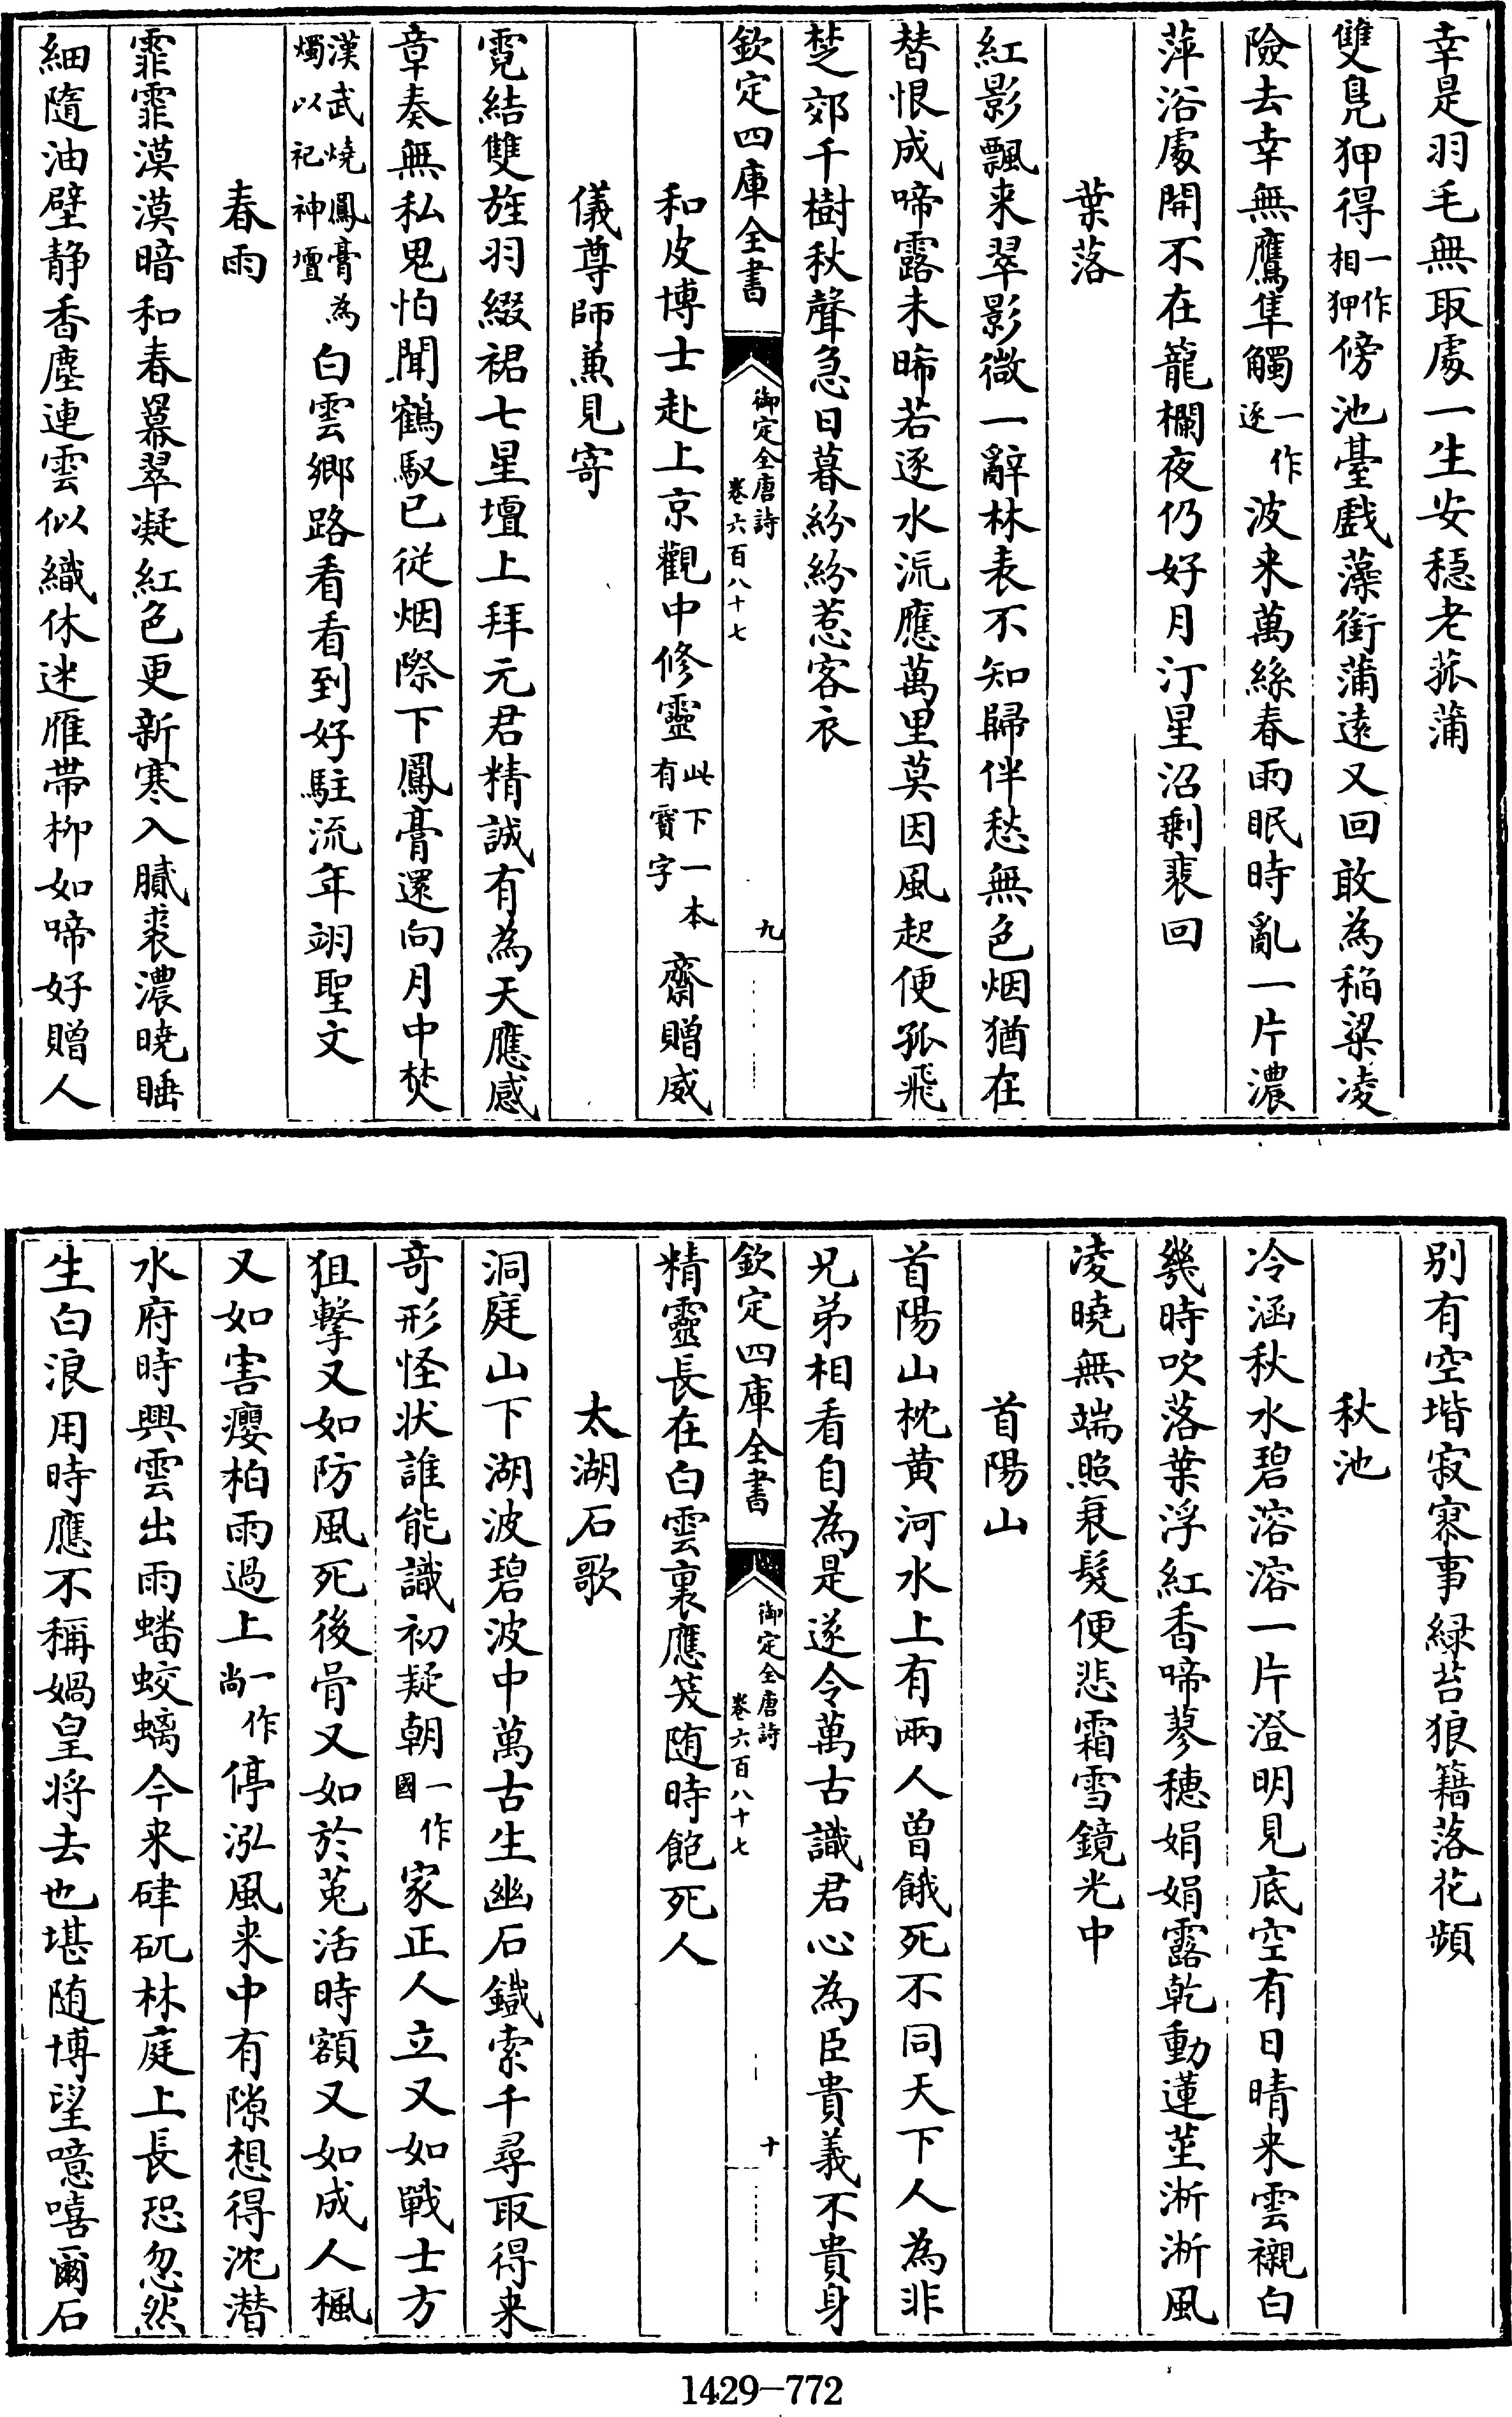 幸是羽毛無取處一生安穩老菰蒲
雙鳧狎得一作相狎傍池臺戲藻銜蒲遠又回敢為稻粱凌
險去幸無鷹隼觸一作逐波来萬絲春雨眠時亂一片濃
萍浴處開不在籠欄夜仍好月汀星沼剩裴回
葉落
紅影飄来翠影微一辭林表不知歸伴愁無色烟猶在
替恨成啼露未晞若逐水流應萬里莫因風起便孤飛
楚郊千樹秋聲急日暮紛紛惹客衣
欽定四庫全書
御定全唐詩
卷六百八十七
九
和皮博士赴上京觀中修靈此下一本有寶字齋贈威
儀尊師兼見寄
霓結雙旌羽綴裙七星壇上拜元君精誠有為天應感
章奏無私鬼怕聞鶴馭已從烟際下鳳膏還向月中焚
漢武燒鳳膏為燭以祀神壇白雲鄉路看看到好駐流年翊聖文
春雨
霏霏漠漠暗和春冪翠凝紅色更新寒入膩裘濃曉睡
細隨油壁静香塵連雲似織休迷雁帶柳如啼好贈人
别有空堦寂寥事緑苔狼籍落花頻
秋池
冷涵秋水碧溶溶一片澄明見底空有日晴来雲襯白
幾時吹落葉浮紅香啼蓼穗娟娟露乾動蓮莖淅淅風
凌曉無端照衰髮便悲霜雪鏡光中
首陽山
首陽山枕黄河水上有兩人曽餓死不同天下人為非
兄弟相看自為是遂令萬古識君心為臣貴義不貴身
欽定四庫全書
御定全唐詩
卷六百八十七
十
精靈長在白雲裏應笑随時飽死人
太湖石歌
洞庭山下湖波碧波中萬古生幽石鐵索千尋取得来
奇形怪状誰能識初疑朝一作國家正人立又如戰士方
狙擊又如防風死後骨又如於菟活時額又如成人楓
又如害癭柏雨過上一作尚停泓風来中有隙想得沈潜
水府時興雲出雨蟠蛟螭今来硉矹林庭上長恐忽然
生白浪用時應不稱媧皇将去也堪随博望噫嘻爾石
1429-772